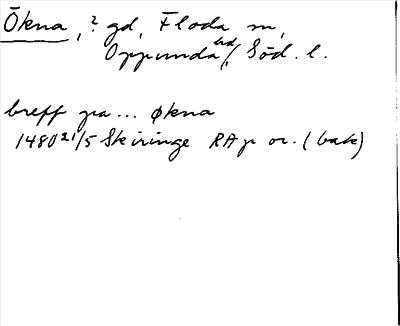 Ökna, ? gd, Floda sn,
Oppunda hd, Söd. l.
breff pa ... økna
1480 21/5 Skiringe RAp or. (bak)